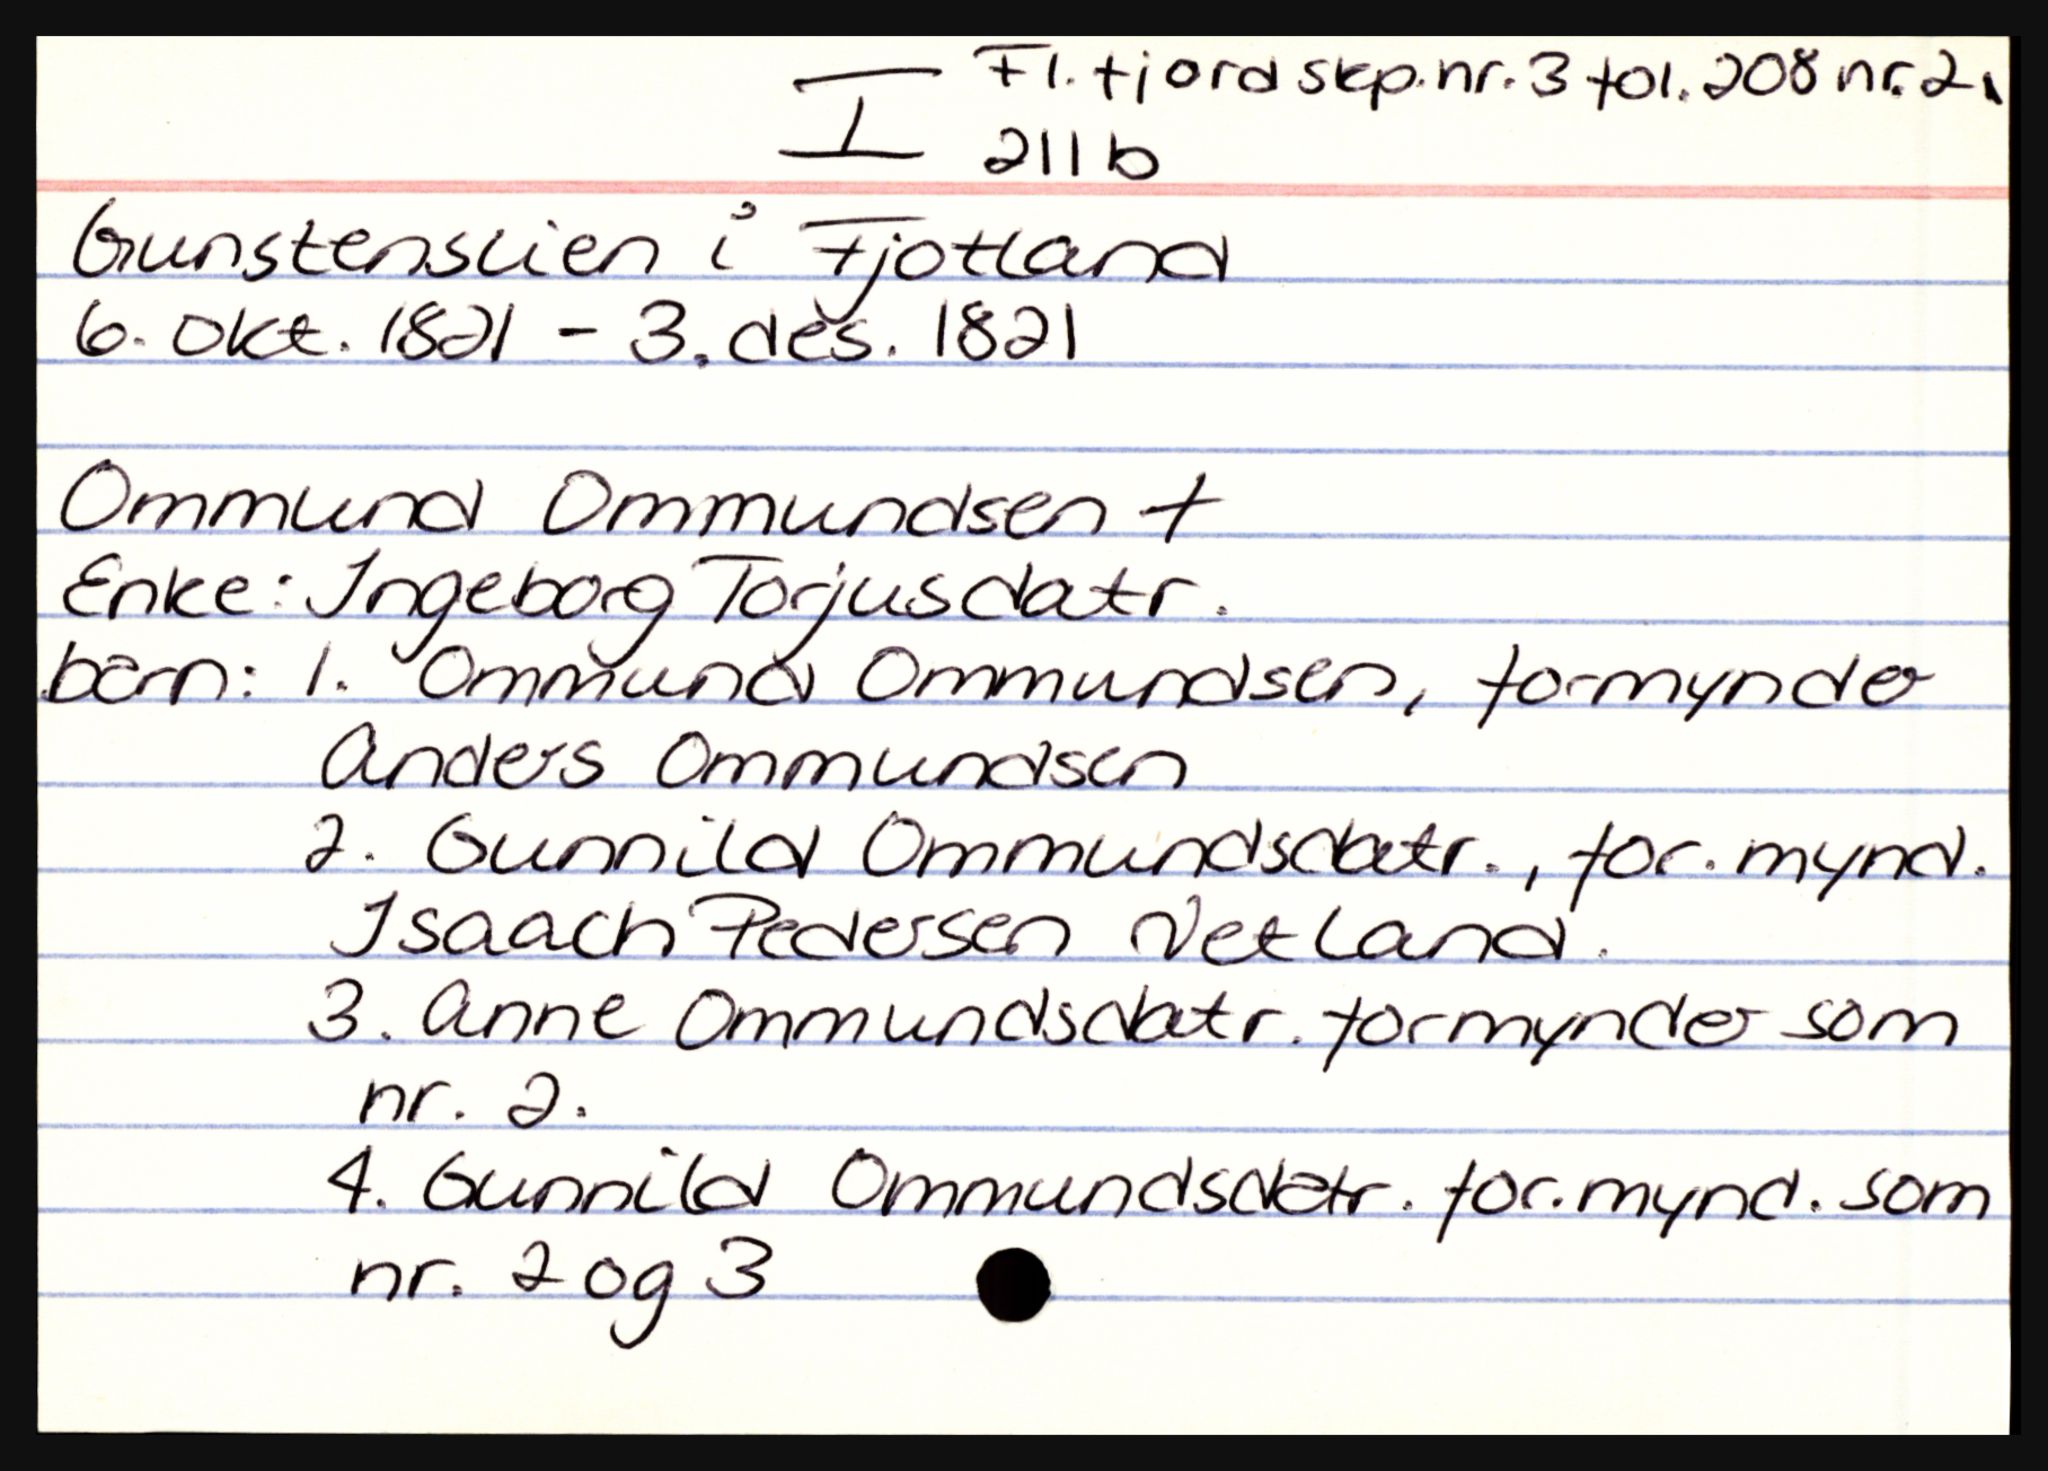 I Fl.fjord skp.nr.3 fol. 208 nr. 2,
211b
Gunstenslien i Fjotland
6. okt. 1821 - 3. des. 1821
Ommund Ommundsen †
Enke: Ingeborg Torjusdatr.
barn: 1. Ommund Ommundsen, formynder
Anders Ommundsen
2. Gunnild Ommundsdatr., for.mynd.
Isaach Pedersen Netland.
3. Anne Ommundsdatr. formynder som
nr. 2.
4. Gunnild Ommundsdatr. for.mynd. som
nr. 2 og 3